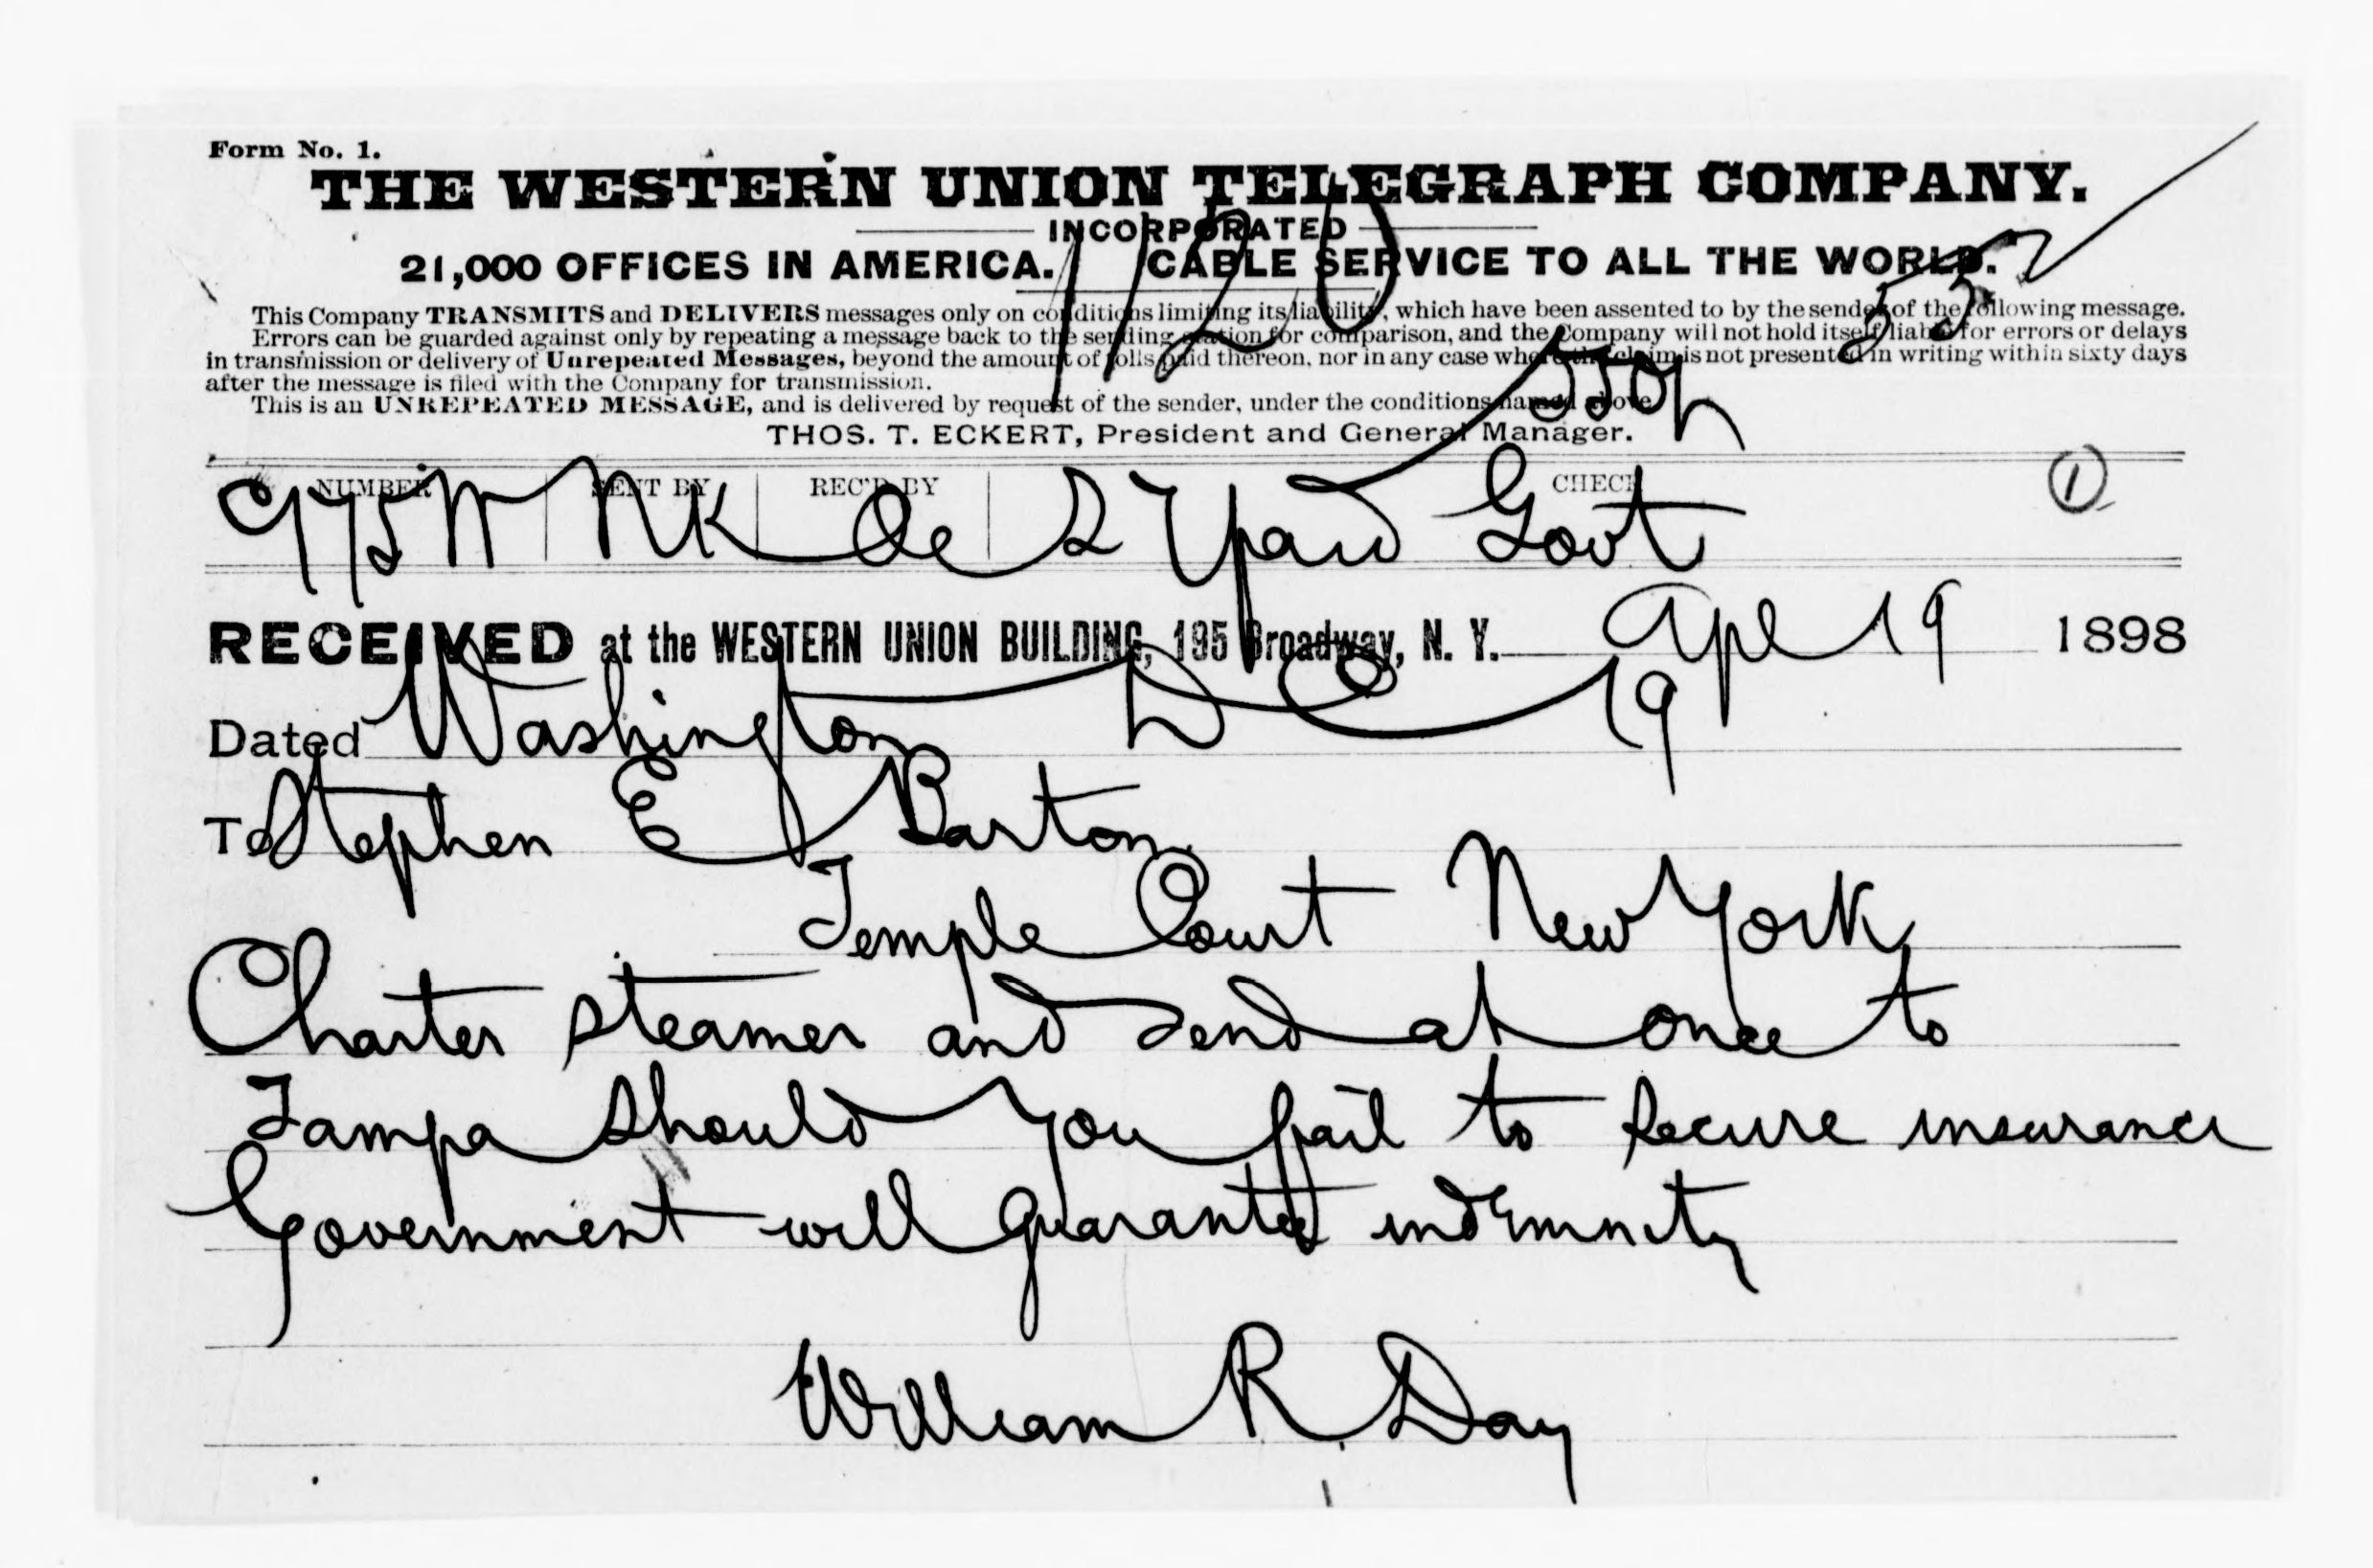 Form No. 1.
THE WESTERN UNION TELEGRAPH COMPANY.
INCORPORATED
21,000 OFFICES IN AMERICA. CABLE SERVICE TO ALL THE WORLD.
This Company TRANSMITS and DELIVERS messages only on conditions limiting its liability, which have been assented to by the sender of the following message.
Errors can be guarded against only by repeating a message back to the sending station for comparison, and the Company will not hold itself liable for errors or delays
in transmission or delivery of Unrepeated Messages, beyond the amount of tolls paid thereon, nor in any case where the claim is not presented in writing within sixty days
after the message is filed with the Company for transmission.
This is an UNREPEATED MESSAGE, and is delivered by request of the sender, under the conditions named above.
THOS. T. ECKERT, President and General Manager.
NUMBER SENT BY REC'D BY CHECK
NK Paid Govt 1
RECEIVED at the WESTERN UNION BUILDING, 195 Broadway, N. Y. Apl 19 1898
Dated Washington DC 19
To Stephen E Barton
Temple Court New York
Charter steamer and send at once to
Tampa should you fail to secure insurance
Government will guarantee indemnity
William R Day